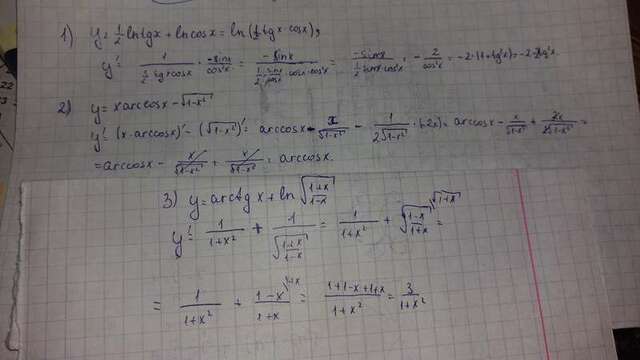 1) y = 1/2 ln tgx + ln cosx = ln(1/2 tgx·cosx),
y' = 1/(1/2 tgx·cosx) · -sinx/cos²x = -sinx/(1/2 · sinx/cosx · cosx · cos²x) = -sinx/(1/2 sinx·cos²x) = -2/cos²x = -2·(1+tg²x) = -2-2tg²x.
2) y = x arccosx - √(1-x²)
y' = (x·arccosx)' - (√(1-x²))' = arccosx - x/√(1-x²) - 1/(2√(1-x²)) · (-2x) = arccosx - x/√(1-x²) + 2x/(2√(1-x²)) =
= arccosx - x/√(1-x²) + x/√(1-x²) = arccosx.
3) y = arctg x + ln √((1+x)/(1-x))
y' = 1/(1+x²) + 1/√((1+x)/(1-x)) = 1/(1+x²) + √((1-x)/(1+x))
= 1/(1+x²) + (1-x)/(1+x) = (1+1-x+1+x)/(1+x²) = 3/(1+x²)